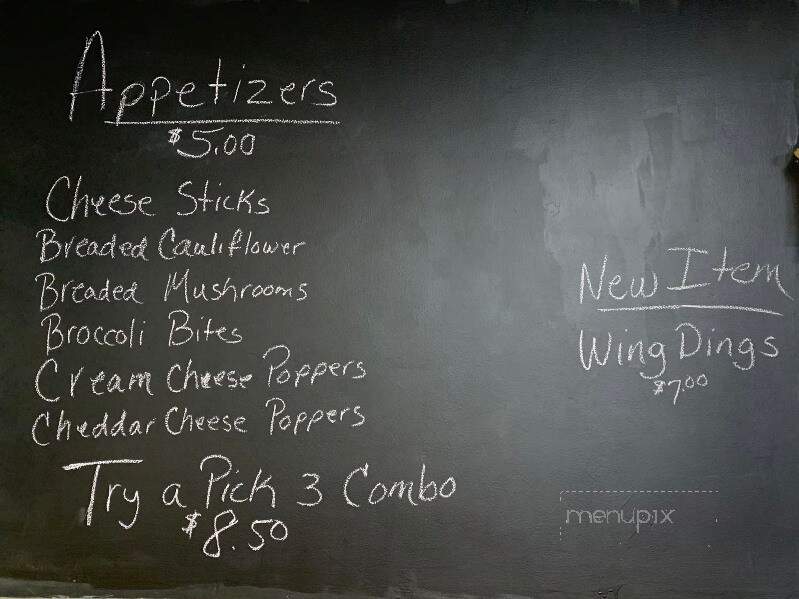 Appetizers
$5.00
Cheese Sticks
Breaded Cauliflower
Breaded Mushrooms
Broccoli Bites
Cream Cheese Poppers
Cheddar Cheese Poppers
Try a Pick 3 Combo
$8.50
New Item
Wing Dings
$7.00
menupix